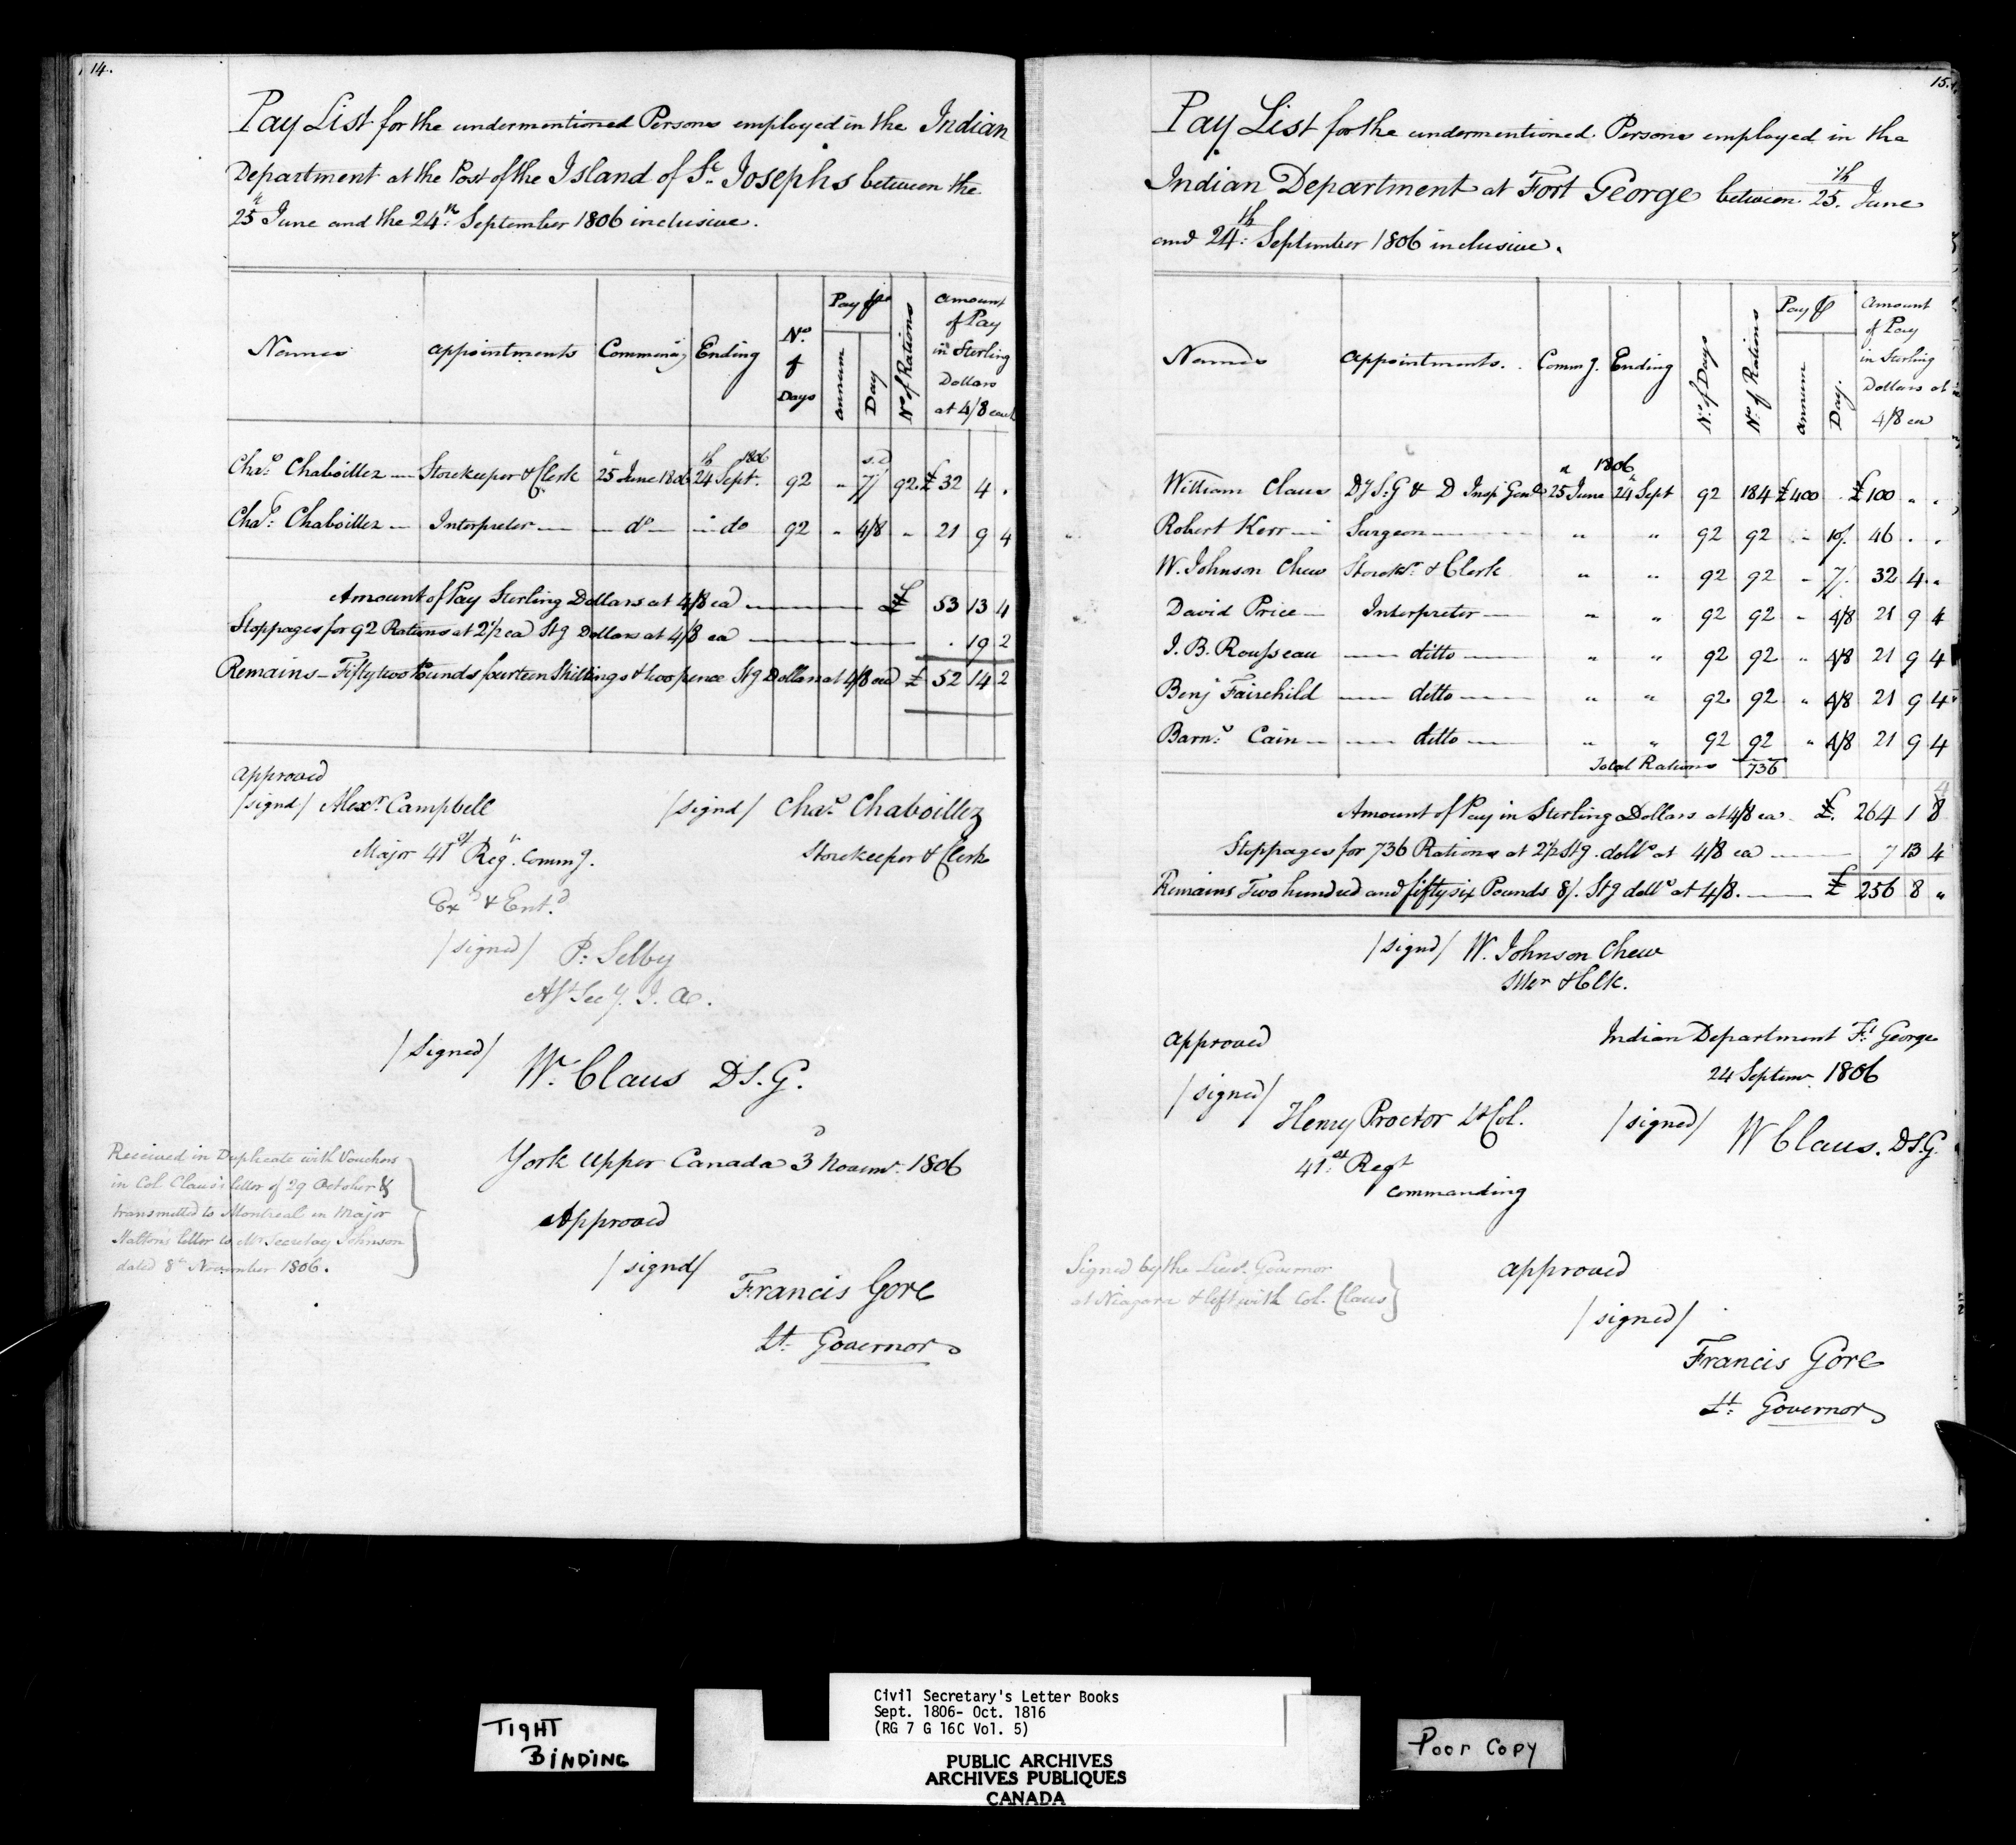 14.
Pay List for the undermentioned Persons employed in the Indian
Department at the Post of the Island of St. Josephs between the
25th June and the 24th: September 1806 inclusive.
Names
appointments
Commencig
Ending
No. of Days
Pay pr
annum
Day
No of Rations
Amount of Pay in Sterling Dollars at 4/8 each
Chas. Chaboillez — Storekeeper & Clerk 25 June 1806 24th Sept. 1806 92 " s.d 7/ 92. £32 4 .
Chas: Chaboillez — Interpreter — — do — — do 92 " 4/8 " 21 9 4
Amount of Pay Sterling Dollars at 4/8 ea — £ 53 13 4
Stoppages for 92 Rations at 2 1/2 ea Stg Dollars at 4/8 ea — . 19 2
Remains — Fifty two Pounds fourteen Shillings & two pence Stg Dollars at 4/8 ea £ 52 14 2
approved
/signd/ Alexr. Campbell
Major 41st Reg. Commg.
/signd/ Chas. Chaboillez
Storekeeper & Clerk
Exd & Entd.
/signed/ P. Selby
Asst Secy. I. A.
/Signed/ W. Claus D S. G.
Received in Duplicate with Vouchers
in Col. Claus's letter of 29 October &
transmitted to Montreal in Major
Halton's letter to Mr Secretay Johnson
dated 8th November 1806.
York Upper Canada 3d Novemr. 1806
Approved
/signd/
Francis Gore
Lt. Governor
15.
Pay List for the undermentioned Persons employed in the
Indian Department at Fort George between 25th. June
and 24th: September 1806 inclusive.
Names
appointments.
Commg.
Ending
No. of Days
No. of Rations
Pay pr
annum
Day.
Amount of Pay in Sterling Dollars at 4/8 ea
William Claus Dy S. G & D Insp Genl 25 June 1806 24th Sept 92 184 £400 . £100 " .
Robert Kerr — Surgeon — " " 92 92 — 10/. 46 . .
W. Johnson Chew Storekr. & Clerk " " 92 92 — 7/. 32 4 "
David Price — Interpreter — " " 92 92 " 4/8 21 9 4
J. B. Rousseau — ditto — " " 92 92 " 4/8 21 9 4
Benj Fairchild — ditto — " " 92 92 " 4/8 21 9 4
Barns: Cain — — ditto — " " 92 92 " 4/8 21 9 4
Total Rations 736
Amount of Pay in Sterling Dollars at 4/8 ea £. 264 1 8 4
Stoppages for 736 Rations at 2 1/2 Stg. dolls at 4/8 ea — 7 13 4
Remains Two hundred and fifty six Pounds 8/. Stg dolls at 4/8. — £ 256 8 "
/signd/ W. Johnson Chew
SKer & Clk.
approved
Indian Department Ft. George
24 Septemr. 1806
/signed/
Henry Proctor Lt Col.
41st. Regt
commanding
/signed/ W Claus. D S. G.
Signed by the Lieut. Governor
at Niagara & left with Col. Claus
approved
/signed/
Francis Gore
Lt. Governor
TIGHT
BINDING
Civil Secretary's Letter Books
Sept. 1806- Oct. 1816
(RG 7 G 16C Vol. 5)
PUBLIC ARCHIVES
ARCHIVES PUBLIQUES
CANADA
Poor Copy